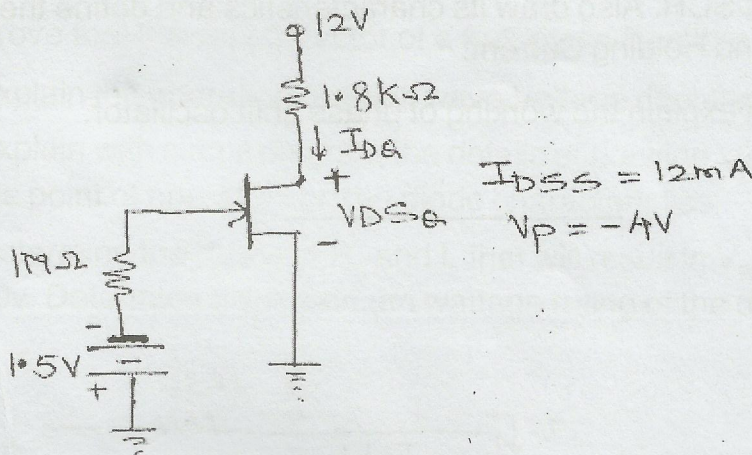 12V
1.8KΩ
↓ IDQ
+
VDSQ
-
IDSS = 12mA
VP = -4V
1MΩ
-
1.5V
+